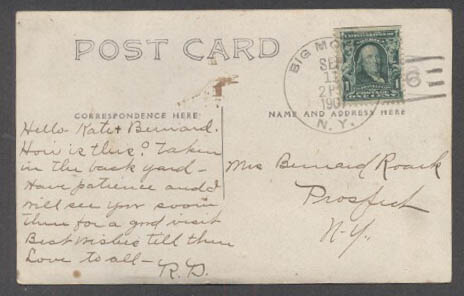 POST CARD
BIG MO
SEP
11
2 P
190
N. Y.
6
ONE CENT
CORRESPONDENCE HERE
NAME AND ADDRESS HERE
Hello Kate & Bernard.
How is this? Taken
in the back yard -
Have patience and I
will see you soon
then for a good visit
Best Wishes till then
Love to all -
R. D.
Mrs Bernard Roark
Prospect
N-Y.